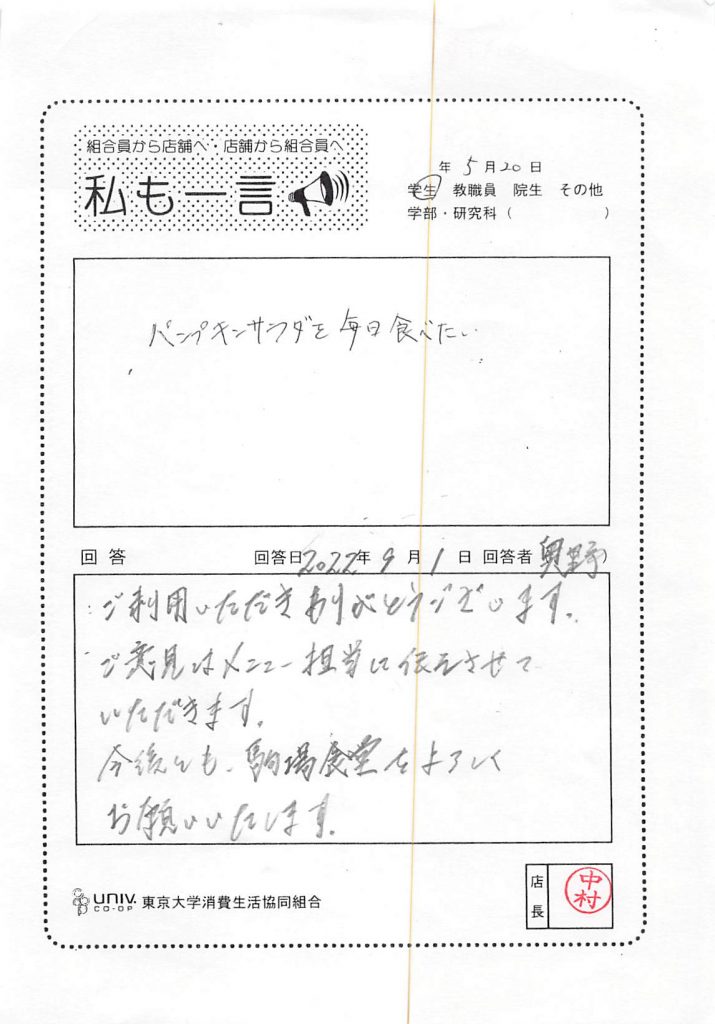 組合員から店舗へ・店舗から組合員へ
私も一言
年 5月20日
学生 教職員 院生 その他
学部・研究科( )
パンプキンサラダを毎日食べたい
回答 回答日2022年 9月 1日 回答者 奥野
ご利用いただきありがとうございます。
ご意見はメニュー担当に伝えさせて
いただきます。
今後とも、駒場食堂をよろしく
お願いいたします。
UNIV.
CO-OP
東京大学消費生活協同組合
店長
中村